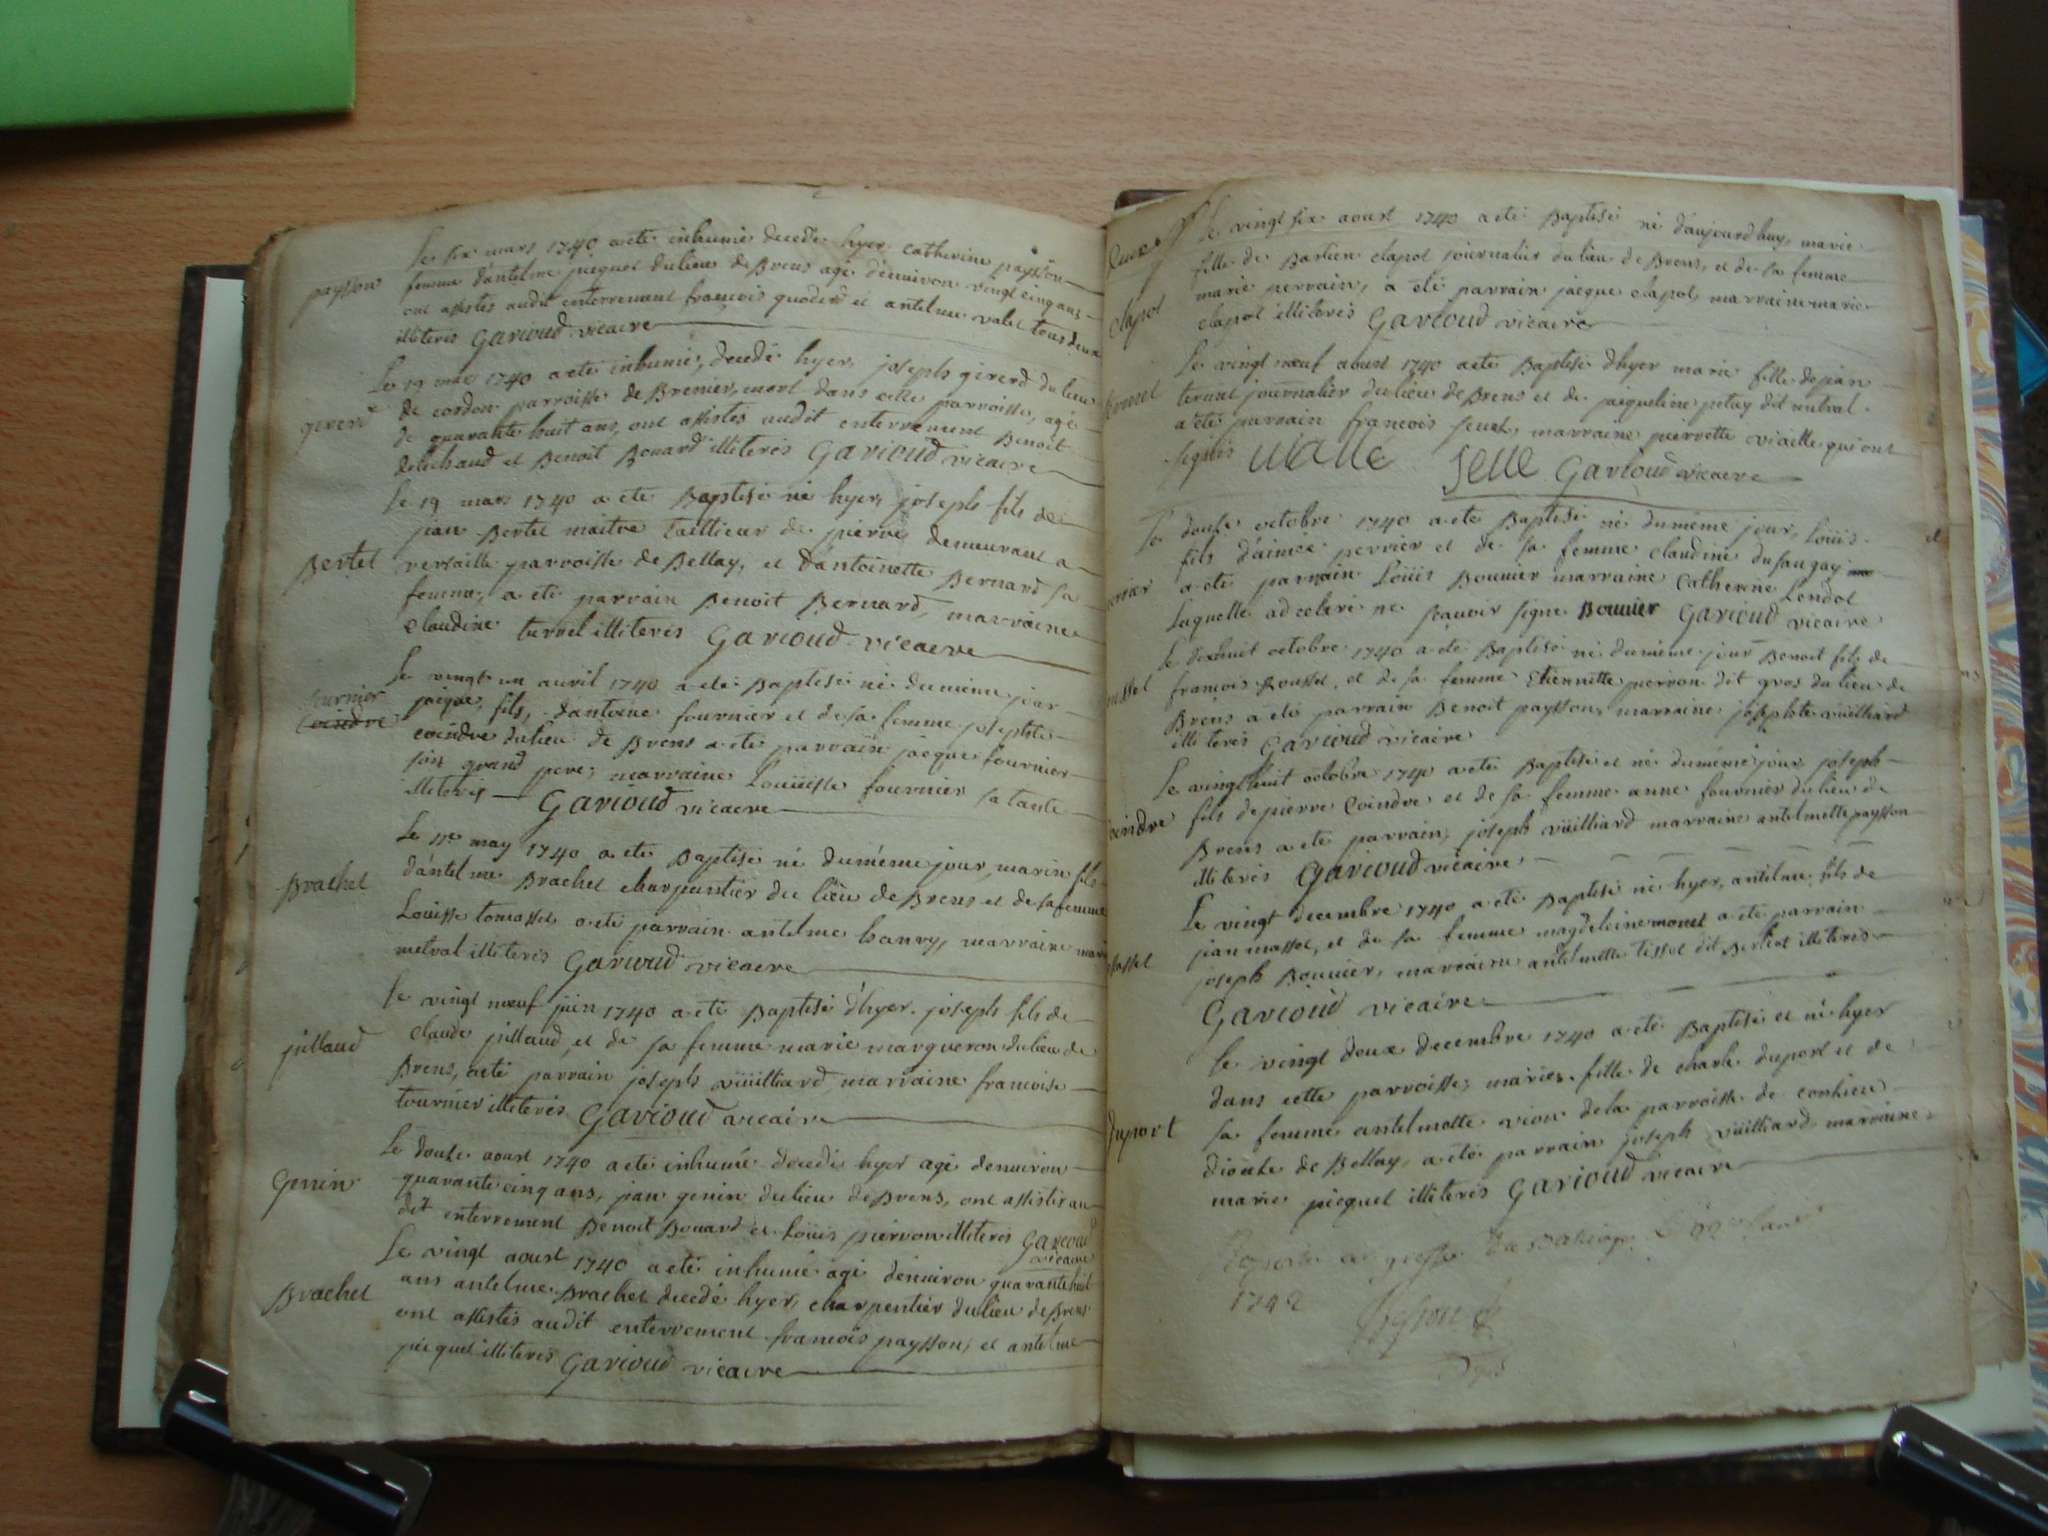 Le six mars 1740 a eté inhumé decedé hyer catherine paysson
paysson
femme dantelme picquet du lieu de Brens agé d'enuiron vingt cinq ans
ont assistes audit enterrement francois et antelme valet tous deux
illiterés Garioud vicaire
Le 19 1740 a eté inhumé, decedé hyer, joseph girerd du lieu
girerd
de cordon parroisse de Bremier, mort dans cette parroisse, agé
de quarante huit ans, ont assistés audit enterrement Benoit
et Benoit Bouard illiterés Garioud vicaire
Le 19 mars 1740 a eté Baptisé né hyer, joseph fils de
jean Bertet maitre Taillieur de pierre demeurant a
Bertet
versaille parroisse de Bellay, et d'antoinette Bernard sa
femme, a eté parrain Benoit Bernard, marraine
claudine turrel illiterés Garioud vicaire
Le vingt un auril 1740 a eté Baptisé né du méme jour
fournier
coindre
jaque, fils, dantoine fournier et de sa femme josephte
coindre du lieu de Brens a eté parrain jacque fournier
son grand pere, marraine Louiisse fournier sa tante
illiterés Garioud vicaire
Le 11e may 1740 a eté Baptisé né du méme jour, marin fils
d'antelme Brachet charpentier du lieu de Brens et de sa femme
Brachet
Louisse tomasset a eté parrain antelme hanry, marraine
metral illiterés Garioud vicaire
le vingt nœuf juin 1740 a eté Baptisé d'hyer joseph fils de
claude jullaud, et de sa femme marie marqueron du lieu de
jullaud
Brens, a eté parrain joseph vüilliard marraine francoise
tournier illiterés Garioud vicaire
Le douse aoust 1740 a eté inhumé decedé hyer agé denuiron
quarante cinq ans, jean genin du lieu de Brens, ont assistés au
Genin
dit enterrement Benoit Bouard et Loüis pierron illiterés Garioud
vicaire
Le vingt aoust 1740 a eté inhumé agé denuiron quarante huit
ans antelme Brachet decedé hyer, charpentier du lieu de Brens
Brachet
ont assistés audit enterrement francois paysson, et antelme
picquet illiterés Garioud vicaire
le vingt six aoust 1740 a eté Baptisé né d'aujourdhuy, marie
fille de Bastien clapot journalier du lieu de Brens, et de sa femme
marie perrain, a eté parrain jacque clapot, marraine marie
clapot
clapot illiterés Garioud vicaire
Le vingt nœuf aoust 1740 a eté Baptisé d'hyer marie fille de jean
journalier du lieu de Brens et de jacqueline petay dit
a eté parrain francois marraine pierrette vialle qui ont
signés vialle selle Garioud vicaire
Le douse octobre 1740 a eté Baptisé né du méme jour, Loüis
fils d'aimée perrier et de sa femme claudine dusaugay
a eté parrain Loüis Bouuier marraine Catherine Lendot
Laquelle a declaré ne scauoir signe Bouuier Garioud vicaire
Le dixhuit octobre 1740 a eté Baptisé né du méme jour Benoit fils de
francois Roussel, et de sa femme Etiennette pierron dit gros du lieu de
Brens a eté parrain Benoit paysson, marraine josephte vüilliard
illiterés Garioud vicaire
Le vingt huit octobre 1740 a eté Baptisé et né du méme jour joseph
fils de pierre Coindre et de sa femme anne fournier du lieu de
coindre
Brens a eté parrain, joseph vüilliard marraine antelmette paysson
illiterés Garioud vicaire
Le vingt decembre 1740 a eté Baptisé né hyer, antelme fils de
jean massot, et de sa femme magdeleine monet a eté parrain
joseph Bouuier, marraine antelmette tissot dit Berliot illiterés
Garioud vicaire
le vingt doux decembre 1740 a eté Baptisé et né hyer
dans cette parroisse, marie fille de charle duport et de
sa femme antelmette viou de la parroisse de
duport
diocése de Bellay, a eté parrain joseph vüilliard, marraine
marie picquet illiterés Garioud vicaire
1742